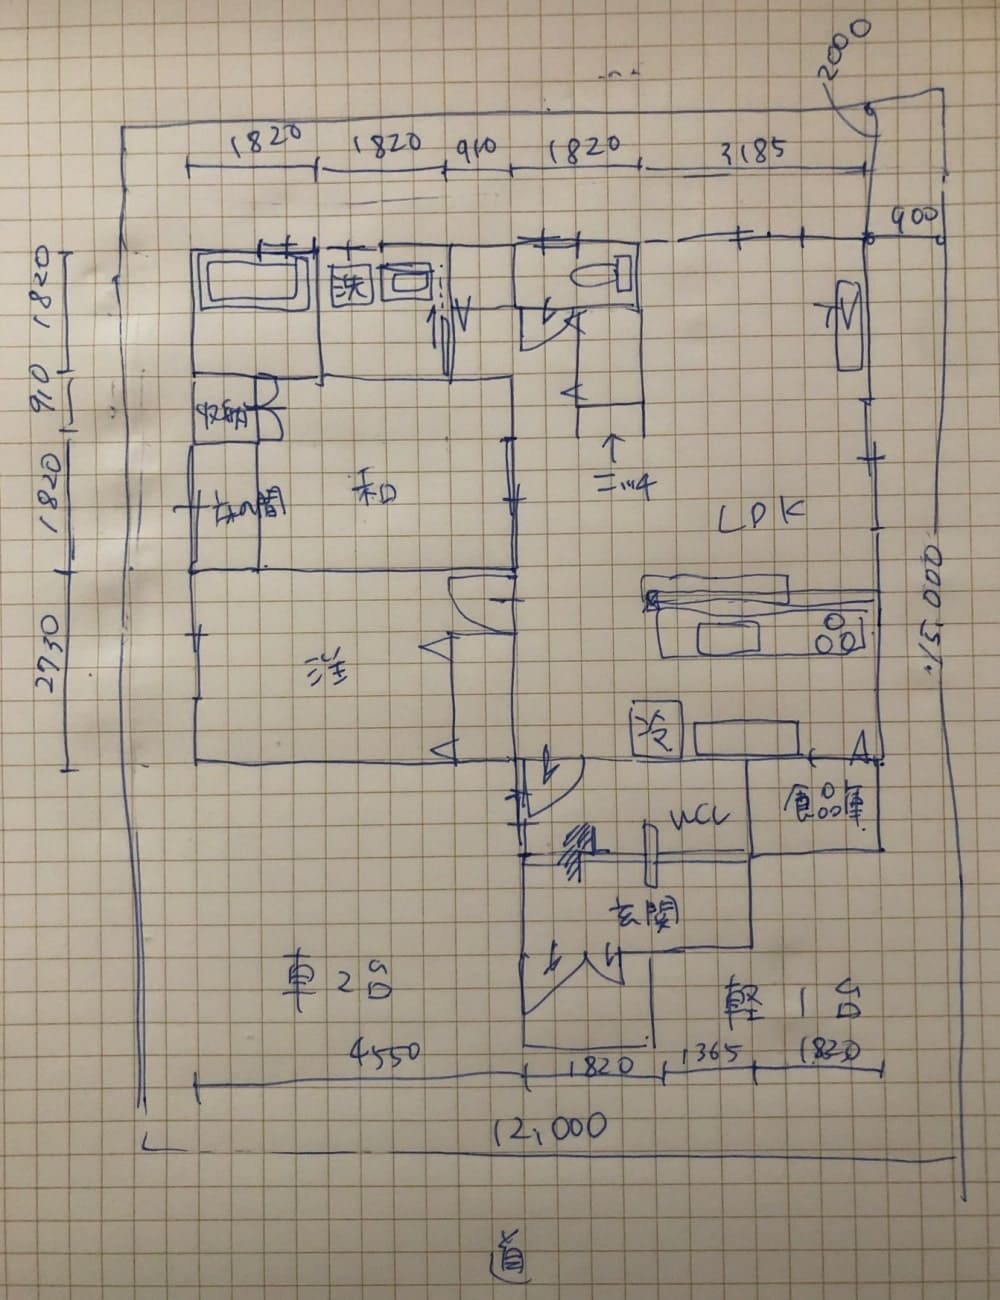 2000
1820
1820
910
1820
3185
900
1820
910
1820
2730
洗
収納
和
LDK
15.000
洋
冷
WCL
食品庫
玄関
車2台
軽1台
4550
1820
1365
1820
12,000
道